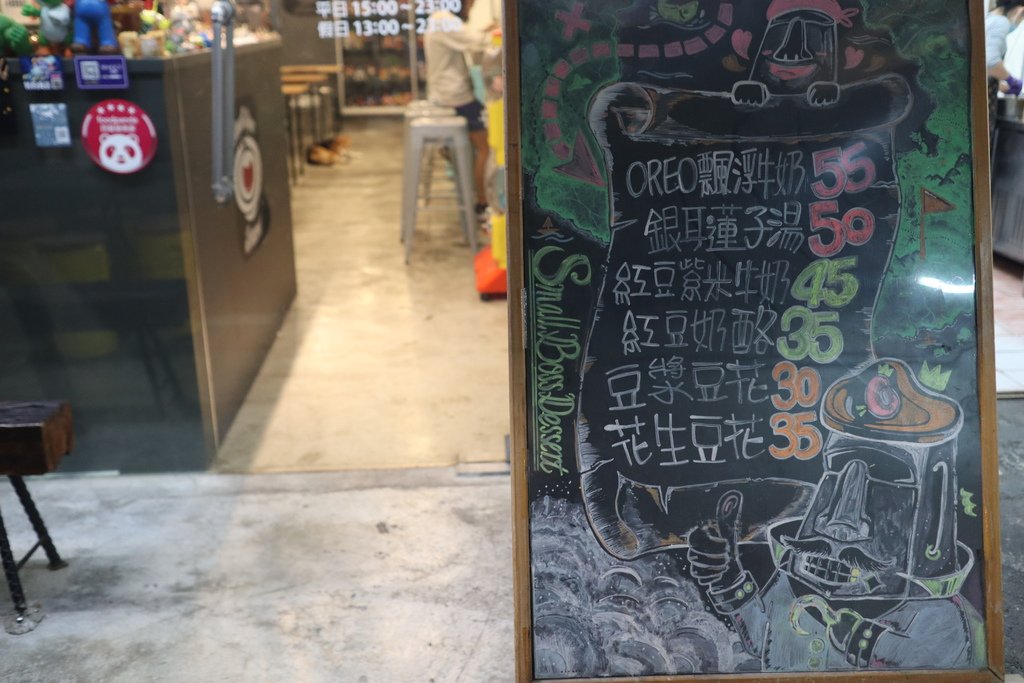 平日 15:00～23:00
假日 13:00～23:00
foodpanda
OREO飄浮牛奶 55
銀耳蓮子湯 50
紅豆紫米牛奶 45
紅豆奶酪 35
豆漿豆花 30
花生豆花 35
Small Boss Dessert